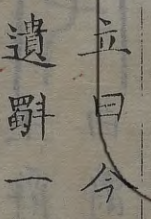 立曰今
遺一